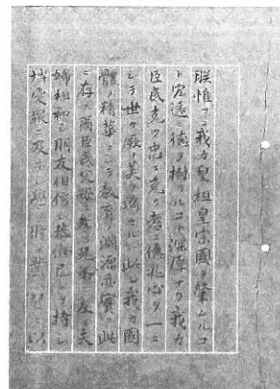 朕惟フニ我カ皇祖皇宗國ヲ肇ムルコ
ト宏遠ニ德ヲ樹ツルコト深厚ナリ我カ
臣民克ク忠ニ克ク孝ニ億兆心ヲ一ニ
シテ世々厥ノ美ヲ濟セルハ此レ我カ國
體ノ精華ニシテ教育ノ淵源亦實ニ此
ニ存ス爾臣民父母ニ孝ニ兄弟ニ友ニ夫
婦相和シ朋友相信シ恭儉己レヲ持シ
博愛衆ニ及ホシ學ヲ修メ業ヲ習ヒ以